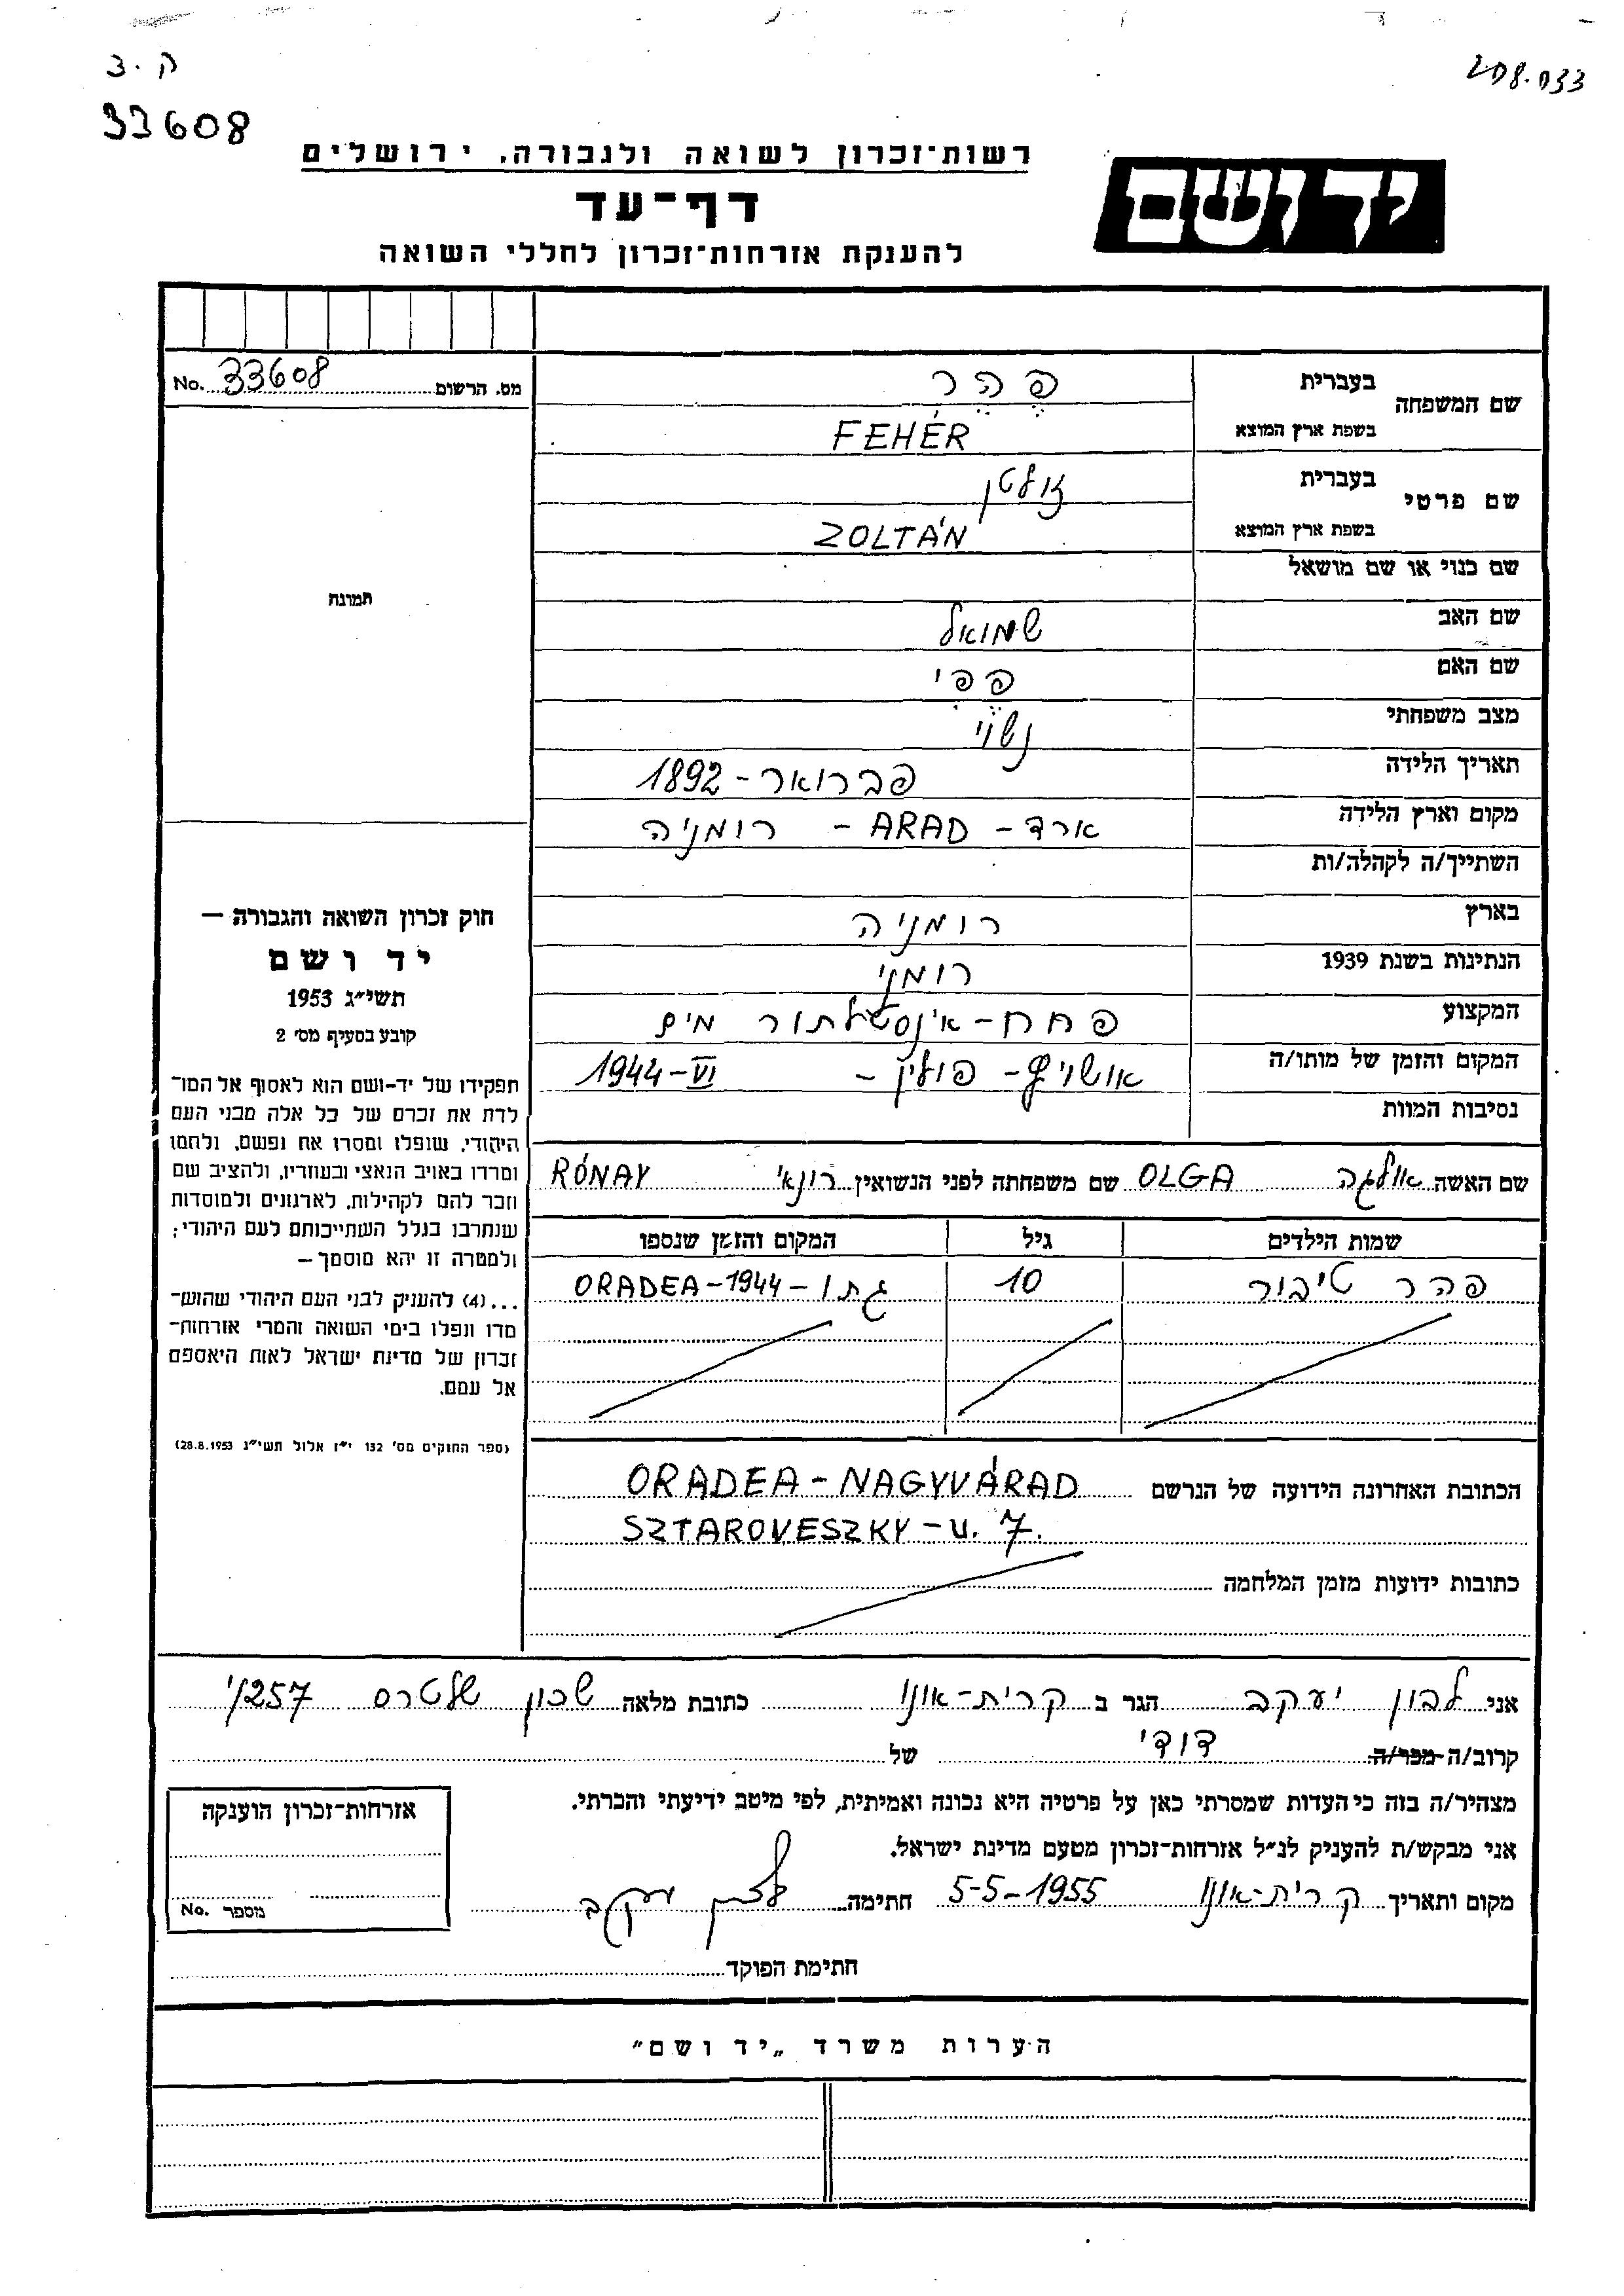 ק.צ
33608
208.033
רשות־זכרון לשואה ולגבורה, ירושלים
דף־עד
להענקת אזרחות־זכרון לחללי השואה
יד ושם
מס. הרשום 33608 No.
תמונה
חוק זכרון השואה והגבורה —
יד ושם
תשי״ג 1953
קובע בסעיף מס׳ 2
תפקידו של יד-ושם הוא לאסוף אל המו־
לדת את זכרם של כל אלה מבני העם
היהודי, שנפלו ומסרו את נפשם, נלחמו
ומרדו באויב הנאצי ובעוזריו, ולהציב שם
וזכר להם לקהילות, לארגונים ולמוסדות
שנחרבו בגלל השתייכותם לעם היהודי;
ולמטרה זו יהא מוסמך —
...(4) להעניק לבני העם היהודי שהוש־
מדו ונפלו בימי השואה והמרי אזרחות־
זכרון של מדינת ישראל לאות היאספם
אל עמם.
(ספר החוקים מס׳ 132 י״ז אלול תשי״ג 28.8.1953)
שם המשפחה בעברית פֶהֶר
בשפת ארץ המוצא FEHÉR
שם פרטי בעברית זולטן
בשפת ארץ המוצא ZOLTÁN
שם כנוי או שם מושאל
שם האב שמואל
שם האם פפי
מצב משפחתי נשוי
תאריך הלידה פברואר - 1892
מקום וארץ הלידה ארד - ARAD - רומניה
השתייך/ה לקהלה/ות
בארץ רומניה
הנתינות בשנת 1939 רומני
המקצוע פחח - אינסטלטור מים
המקום והזמן של מותו/ה אושויץ - פולין - VI - 1944
נסיבות המוות
שם האשה אולגה OLGA שם משפחתה לפני הנשואין רונאי RÓNAY
שמות הילדים גיל המקום והזמן שנספו
פהר טיבור 10 גתו - ORADEA - 1944
הכתובת האחרונה הידועה של הנרשם ORADEA - NAGYVÁRAD
SZTAROVESZKY - u. 7.
כתובות ידועות מזמן המלחמה
אני לבון יעקב הגר ב קרית-אונו כתובת מלאה שכון שלטרס 257/י
קרוב/ה מכר/ה דודי של
מצהיר/ה בזה כי העדות שמסרתי כאן על פרטיה היא נכונה ואמיתית, לפי מיטב ידיעתי והכרתי.
אני מבקש/ת להעניק לנ״ל אזרחות־זכרון מטעם מדינת ישראל.
מקום ותאריך קרית-אונו 5-5-1955 חתימה לבון יעקב
חתימת הפוקד
אזרחות־זכרון הוענקה
מספר No.
הערות משרד „יד ושם״